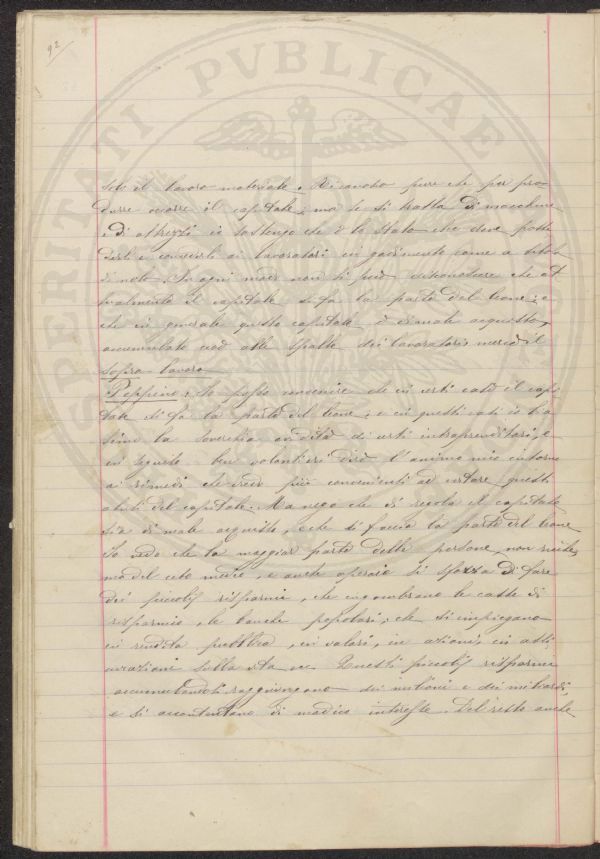 92
PROSPERITATI PVBLICAE
solo il lavoro materiale. Riconosco pure che per pro
durre occorre il capitale; ma se si tratta di macchine
e di attrezzi io sostengo che è lo Stato che deve posse
derli e concederli ai lavoratori in godimento come a titolo
di nolo. In ogni modo non si può disconoscere che at
tualmente il capitale si fa la parte del leone; e
che in generale questo capitale è di male acquisto,
accumulato cioè alle spalle dei lavoratori mercè il
sopra lavoro
Peppino: Io posso convenire che in certi casi il capi
tale si fa la parte del leone; e in questi casi io bia
simo la soverchia avidità di certi intraprenditori, e
in seguito ben volontieri dirò l'animo mio intorno
ai rimedi che credo più convenienti ad evitare questi
abusi del capitale. Ma nego che di regola il capitale
sia di male acquisto, e che si faccia la parte del leone
Io vedo che la maggior parte delle persone, non
ma del ceto medio, e anche operaio si sforza di fare
dei piccoli risparmi, che ingombrano le casse di
risparmio, le banche popolari; che si impiegano
in rendita pubblica, in valori, in azioni, in assi
curazioni sulla vita ecc. Questi piccoli risparmi
accumulandosi raggiungono dei milioni e dei miliardi,
e si accontentano di modico interesse. Del resto anche